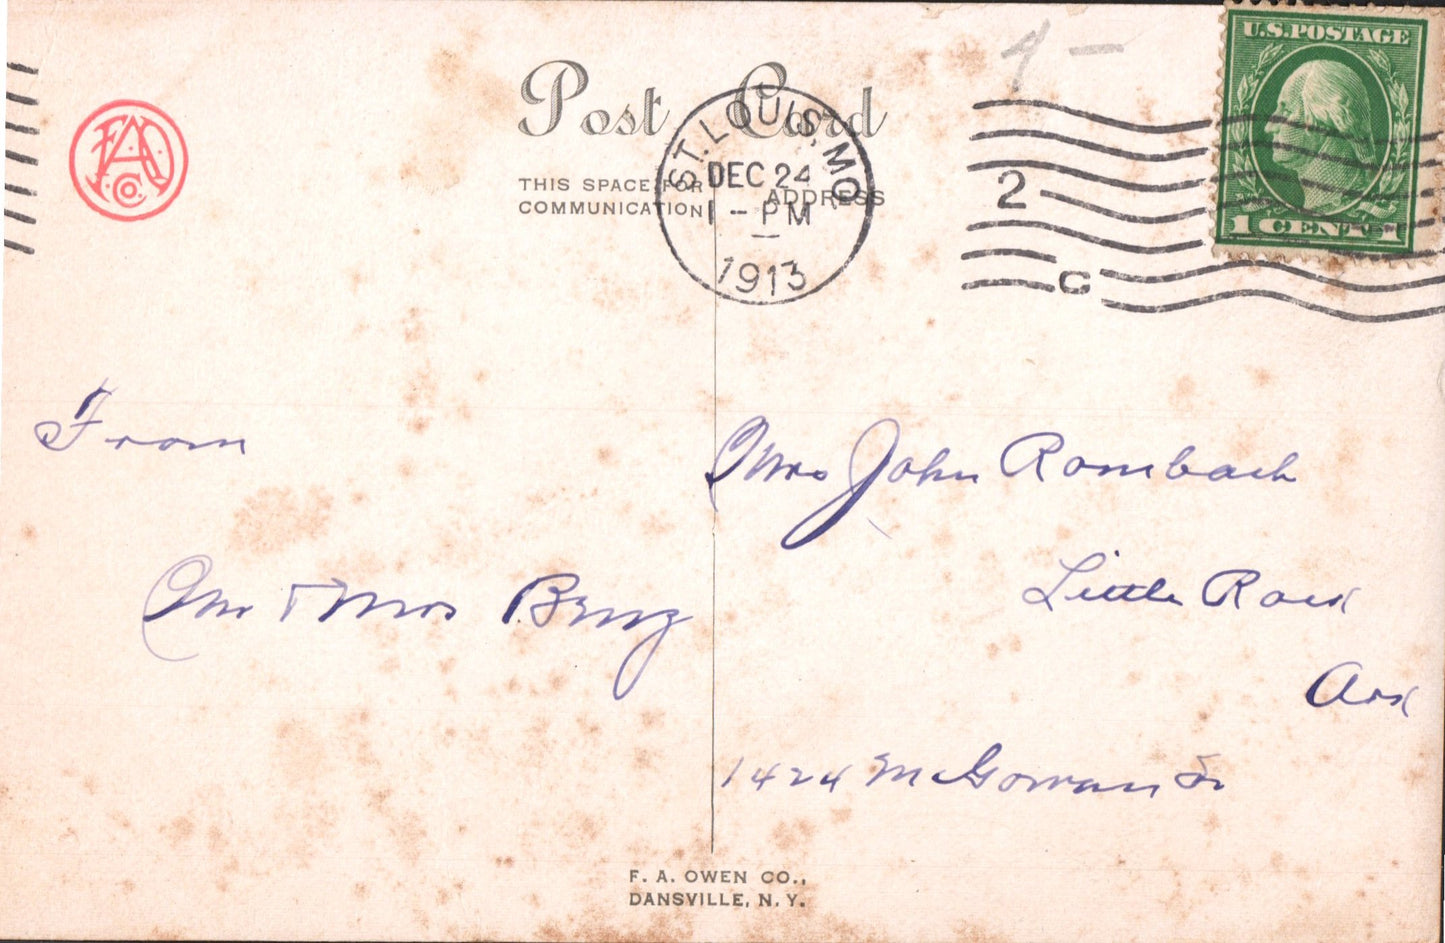 Post Card
THIS SPACE FOR
COMMUNICATION
ADDRESS
ST. LOUIS, MO
DEC 24
1 - PM
1913
2
C
U.S. POSTAGE
1 CENT 1
F.A.O. Co.
From
Mr & Mrs Benz
Mrs John Rombach
Little Rock
Ark
1424 McGowan St
F. A. OWEN CO.,
DANSVILLE, N. Y.